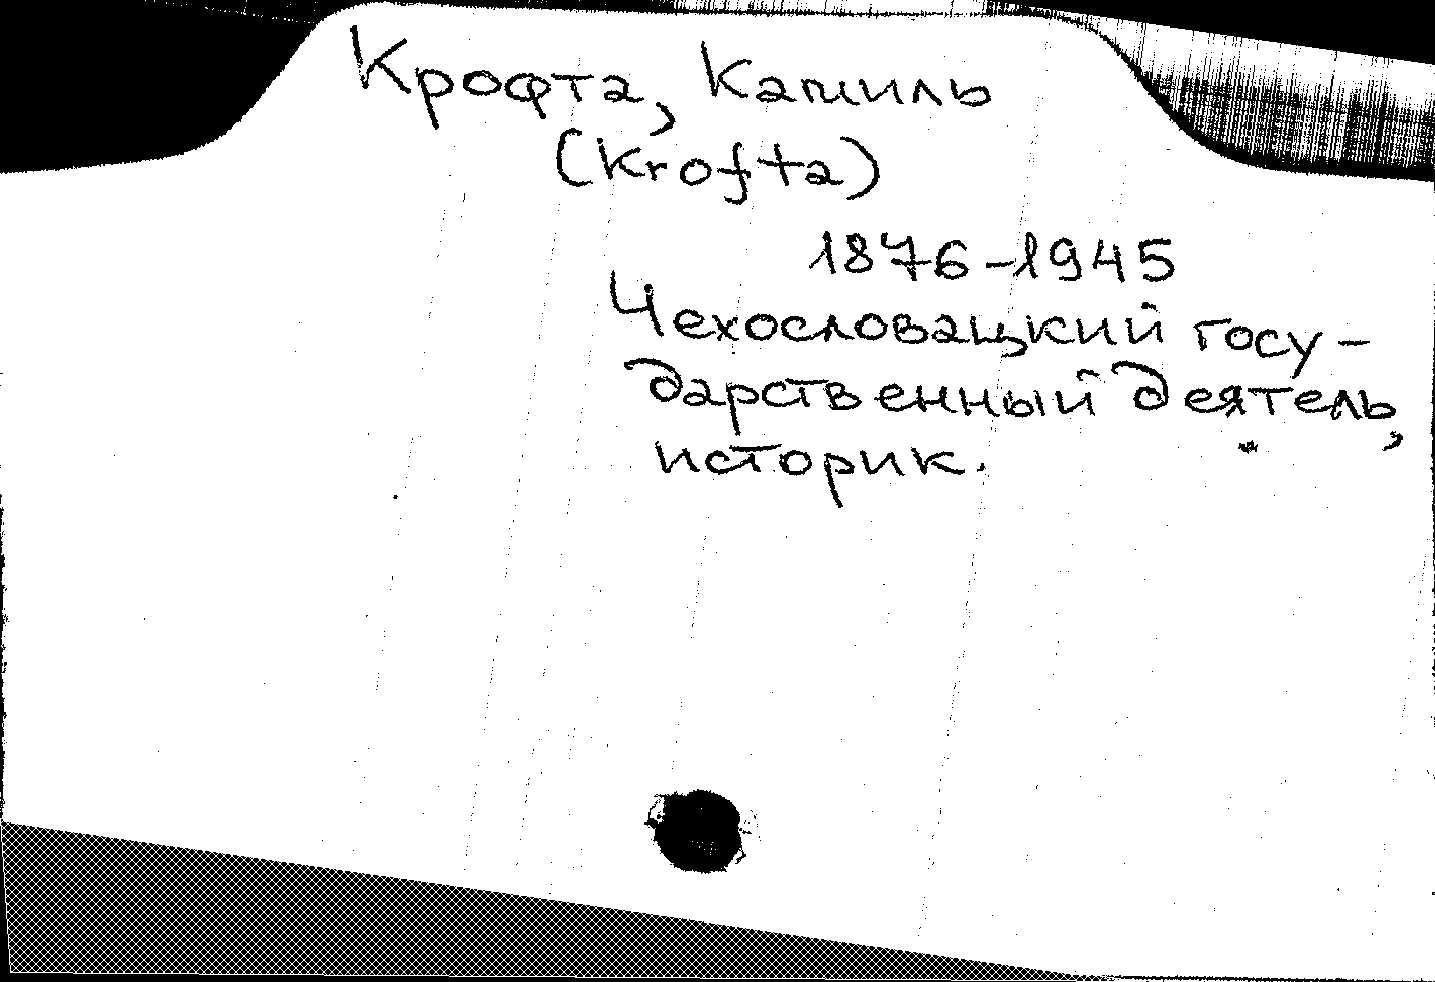 Крофта, Камиль
(Krofta)
1876-1945
Чехословацкий госу-
дарственный деятель,
историк.